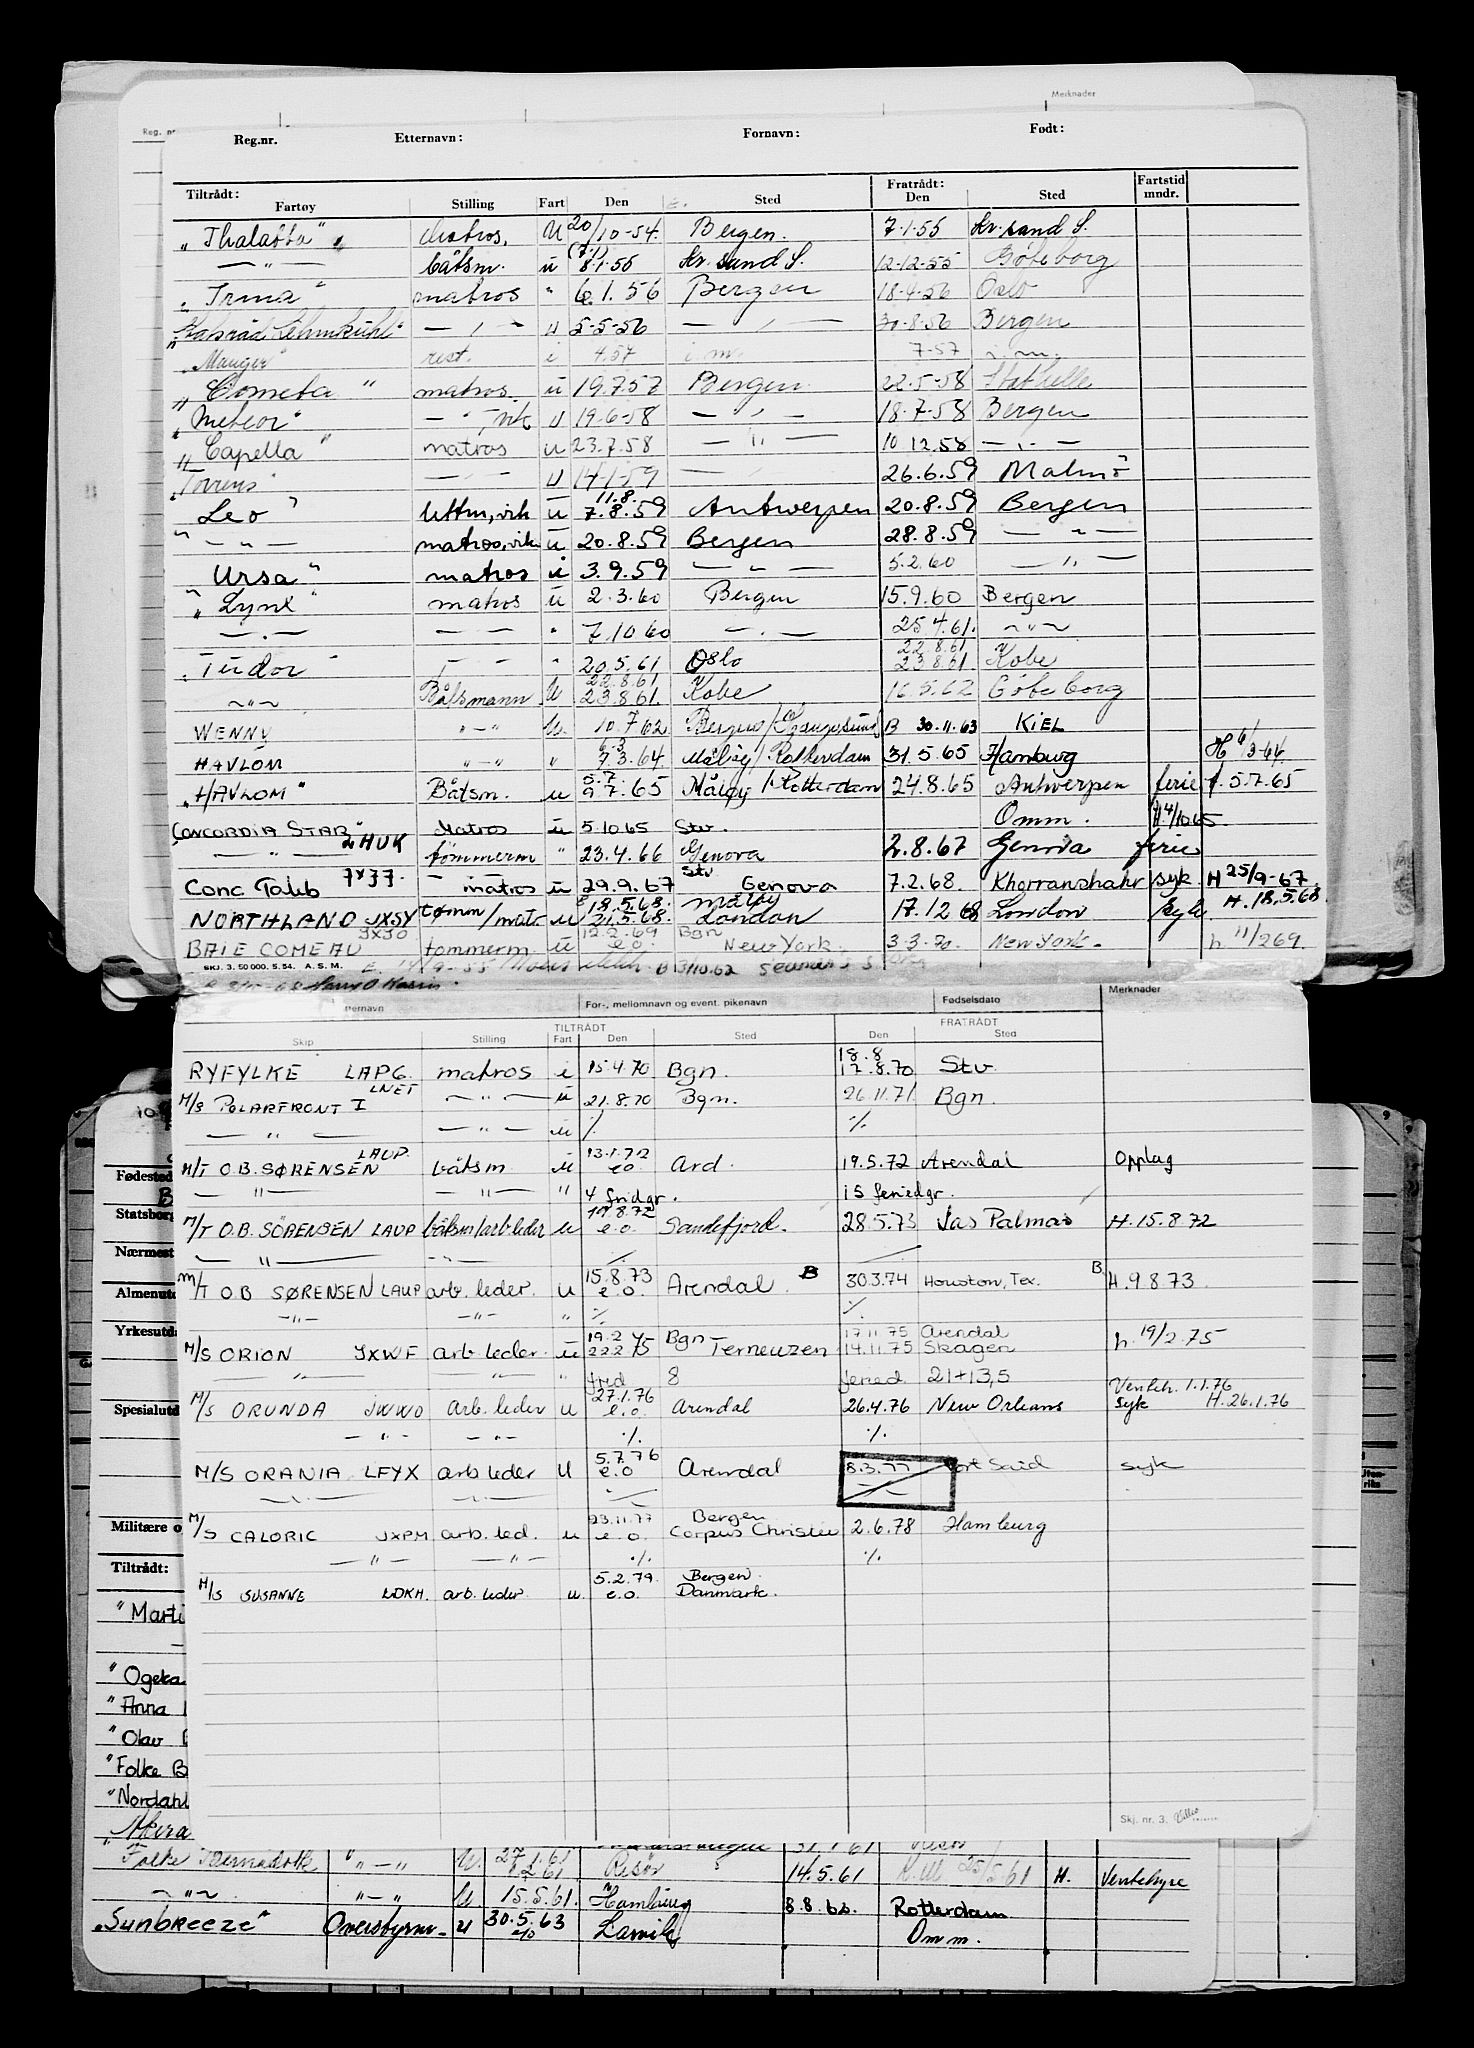 Merknader
Reg. nr
Reg.nr. Etternavn: Fornavn: Født:
Tiltrådt: Fratrådt: Fartstid
Fartøy Stilling Fart Den Sted Den Sted mndr.
"Thalatta" matros. U 20/10-54. Bergen. 7-1-55 Kr.sand S.
— " — båtsm. u (7/1) 8.1.55 Kr. sand S. 12-12-55 Göteborg
"Irma" matros " 6.1.56 Bergen 18-4-56 Oslo
"Statsråd Lehmkuhl" — " — u 5-5-56 — " — 30-8-56 Bergen
"Manger" rest. i 4.57 i.m. 7-57 i.m.
"Cometa" matros u 19.7.57 Bergen 22-5-58 Stathelle
"Meteor" — " — vik u 19-6-58 — " — 18-7-58 Bergen
"Capella" matros u 23.7.58 — " — 10 12.58 — " —
"Torrens" — " — u 14-1-59 — " — 26.6.59 Malmö
11.8.
"Leo" lettm, vik u 7.8.59 Antwerpen 20.8.59 Bergen
— " — matros, vik u 20.8.59 Bergen 28.8.59 — " —
"Ursa" matros u 3.9.59 — " — 5.2.60 — " —
"Lynx" matros u 2.3.60 Bergen 15.9.60 Bergen
— " — — — " 7.10.60 — " — 25.4.61. — " —
22.8.61
"Tudor" — — " 20.5.61 Oslo 23.8.61 Kobe
22.8.61
— " — Båtsmann U 23.8.61. Kobe 16.5.62 Göteborg
WENNY — " — U. 10.7.62 Bergen / Haugesund B 30.11.63 KIEL
6-3
HAVLOM — " — " 9.3.64. Måløy / Rotterdam 31.5.65 Hamburg H 6/3-64.
5.7.
"HAVLOM" Båtsm. u 9.7.65 Måløy / Rotterdam 24.8.65 Antwerpen ferie f. 5.7.65
"CONCORDIA STAR" Matros u 5.10.65 Stv. Omm. H. 4/10.65
— " — LHUK tømmerm " 23.4.66 Genova 2.8.67 Genova ferie
Stv
Conc Taleb matros u 29.9.67 Genova 7.2.68. Khorramshahr syk H 25/9-67
18.5.68. Måløy H. 18.5.68
NORTHLAND JXSY tømm/matr u 21.5.68. London 17.12 68 London syk.
JXJO 12.2.69 Bgn
BAIE COMEAU tømmerm. u e.o. New York. 3-3-70. New York. h 11/269.
SKJ. 3. 50 000. 5. 54. A. S. M.
ternavn For-, mellomnavn og event. pikenavn Fødselsdato Merknader
TILTRÅDT FRATRÅDT
Skip Stilling Fart Den Sted Den Sted
18.8
RYFYLKE LAPG. matros i 15.4.70 Bgn. 17.8.70 Stv
LNET
M/S POLARFRONT I — " — u 21.8.70 Bgn. 26.11.71 Bgn.
— " — — " — u % %
LAUP. 13.1.72
M/T O.B. SØRENSEN båtsm u e.o. Ard. 19.5.72 Arendal Opplag
— " — — " — " 4 fridgr. 15 feriedgr.
19.8.72
M/T O.B. SØRENSEN LAUP båtsm/arb leder u e.o. Sandefjord. 28.5.73 Las Palmas H. 15.8.72
— " — — " — % %
15.8.73
M/T OB SØRENSEN LAUP arb. leder. u e.o. Arendal B 30.3.74 Houston, Tex. B. H. 9.8.73.
— " — — " — " % %
19.2 75 Bgn 17.11.75 Arendal
M/S ORION JXWF arb. leder. u 22.2 75 Terneuzen 14.11.75 Skagen h. 19/2.75
— " — — " — " fred 8 feried 21+13,5
27.1.76 Venteh. 1.1.76
M/S ORUNDA JWWO Arb. leder u e.o. Arendal 26.4.76 New Orleans syk H. 26.1.76
— " — — " — % %
5.7.76
M/S ORANIA LFYX arb leder U e.o Arendal 8.3.77 Port Said syk
— " — — " — %
23.11.77 Bergen
M/S CALORIC JXPM arb. led. u e.o. Corpus Christi 2.6.78 Hamburg
— " — — " — % %
5.2.79. Bergen.
M/S SUSANNE LDKH. arb. leder. u. e.o. Danmark.
Skj. nr. 3.
Fødested
Statsborg
Nærmest
Almenutd
Yrkesutda
Spesialutd
Militære o
Tiltrådt:
"Marti
"Ogeka
"Anna
"Olav
"Folke B
"Nordahl
"Mira 31.1.61 Risør
27.1.61
"Folke Bernadotte " — " U. 1.2.61 Risør 14.5.61 25/5.61 H. Ventehyre
— " — " — " U 15.5.61. Hamburg 8.8.62. Rotterdam
"Sunbreeze" Overstyrm. u 30.5.63 Larvik Omm.